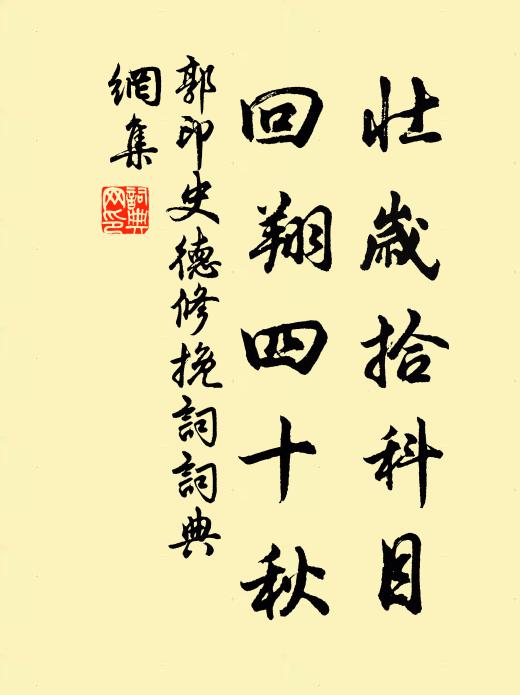 壯歲拾科目
回翔四十秋
郭印史德修挽詞詞典
網集
詞典網印